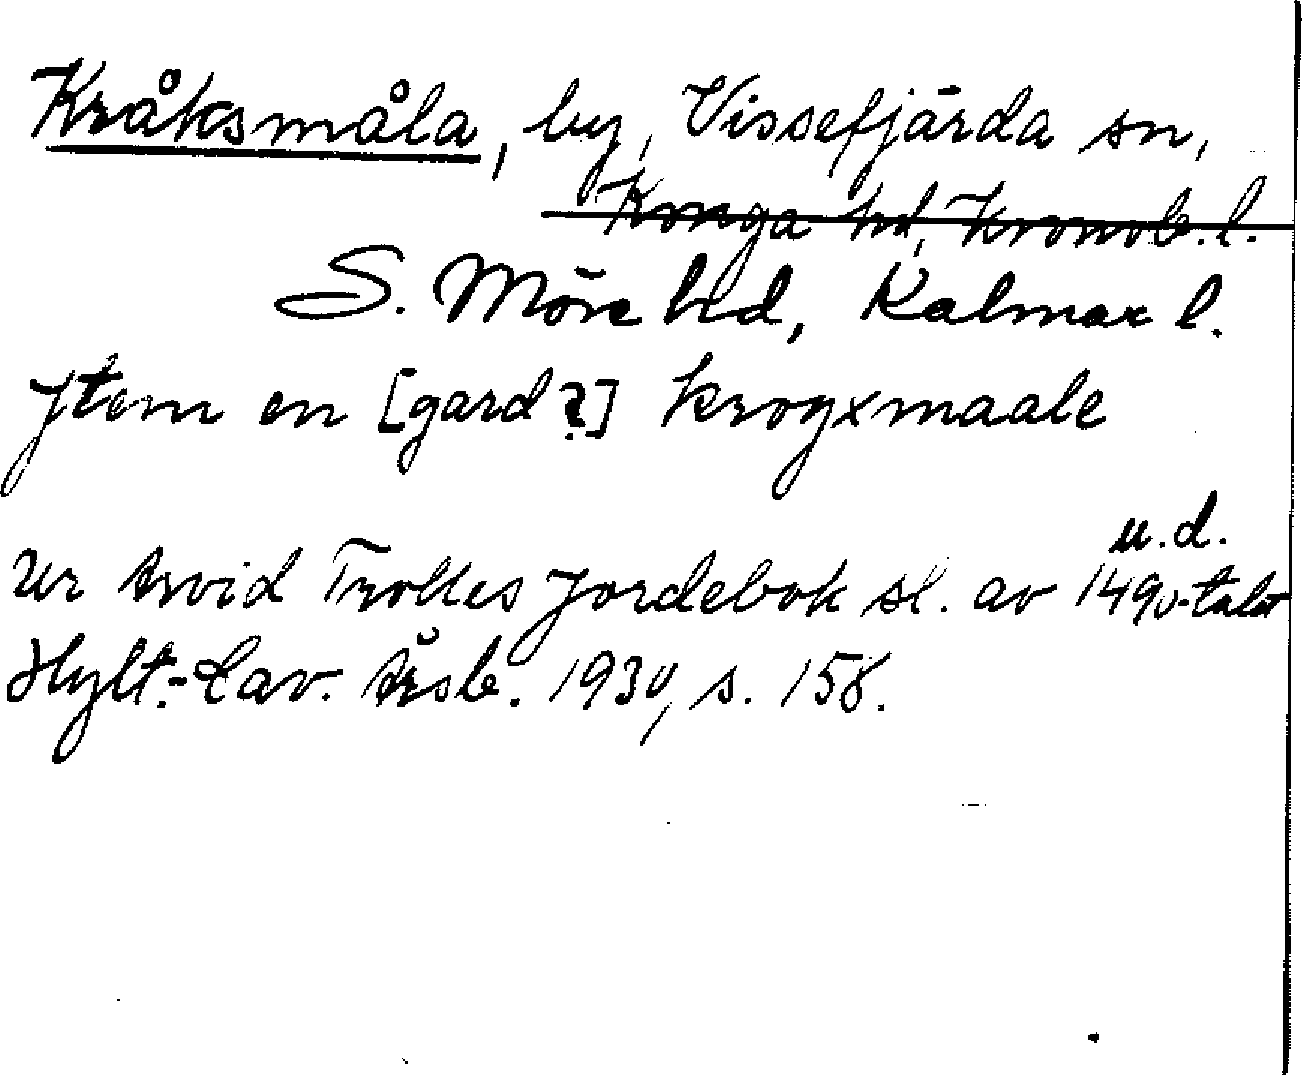 Kråksmåla, by, Vissefjärda sn,
Konga hd, Kronob. l.
S. Möre hd, Kalmar l.
Jtem en [gard?] krogxmaale
u.d.
Ur Arvid Trolles Jordebok sl. av 1490-talet
Hylt.-Cav. Årsb. 1930, s. 158.